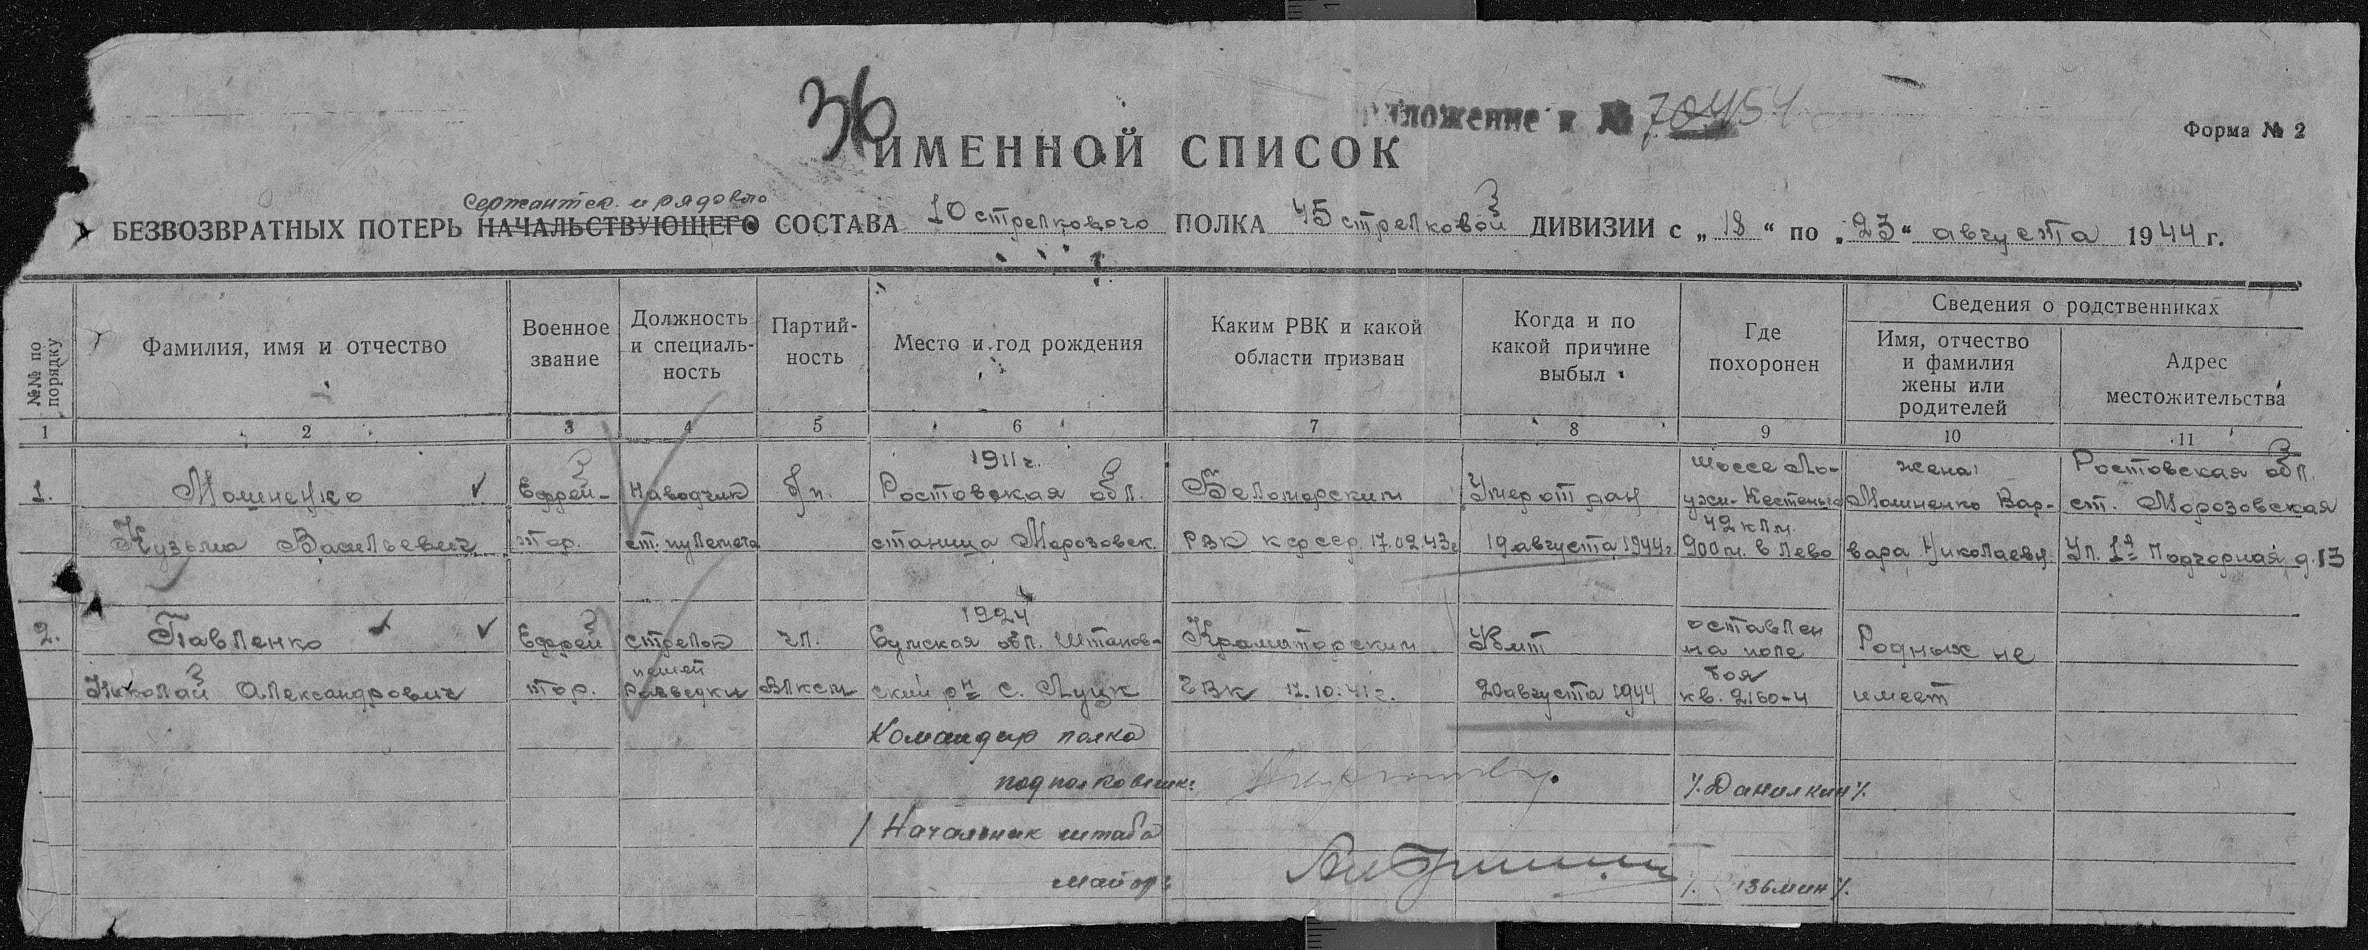 36
Приложение к № 70454
Форма № 2
ИМЕННОЙ СПИСОК
Сержантск. и рядового
БЕЗВОЗВРАТНЫХ ПОТЕРЬ НАЧАЛЬСТВУЮЩЕГО СОСТАВА 10 стрелкового ПОЛКА 45 стрелковой ДИВИЗИИ с „18“ по „23“ августа 1944 г.
№№ по порядку
Фамилия, имя и отчество
Военное звание
Должность и специаль-ность
Партий-ность
Место и год рождения
Каким РВК и какой области призван
Когда и по какой причине выбыл
Где похоронен
Сведения о родственниках
Имя, отчество и фамилия жены или родителей
Адрес местожительства
1 2 3 4 5 6 7 8 9 10 11
1911 г. шоссе Ло- жена: Ростовская обл.
1. Мошненко Ефрей- Наводчик б/п. Ростовская обл. Беломорским Умер от ран ухи-Кестеньга Мошненко Вар- ст. Морозовская
42 клм.
Кузьма Васильевич тор. ст. пулемета станица Морозовск. РВК 17.02.43г 19 августа 1944г. 900 м. влево вара Николаевн. Ул. 1я Подгорная д. 13
1924 оставлен
2. Павленко Ефрей стрелок чл. Сумская обл. Штапов- Краматорским Убит на поле Родных не
пешей боя
Николай Александрович тор. разведки ВЛКСМ ский рн с. Луцк ГВК 17.10.41г. 20 августа 1944 кв. 2160-4 имеет
Командир полка
подполковник: /Данилкин/
Начальник штаба
майор: